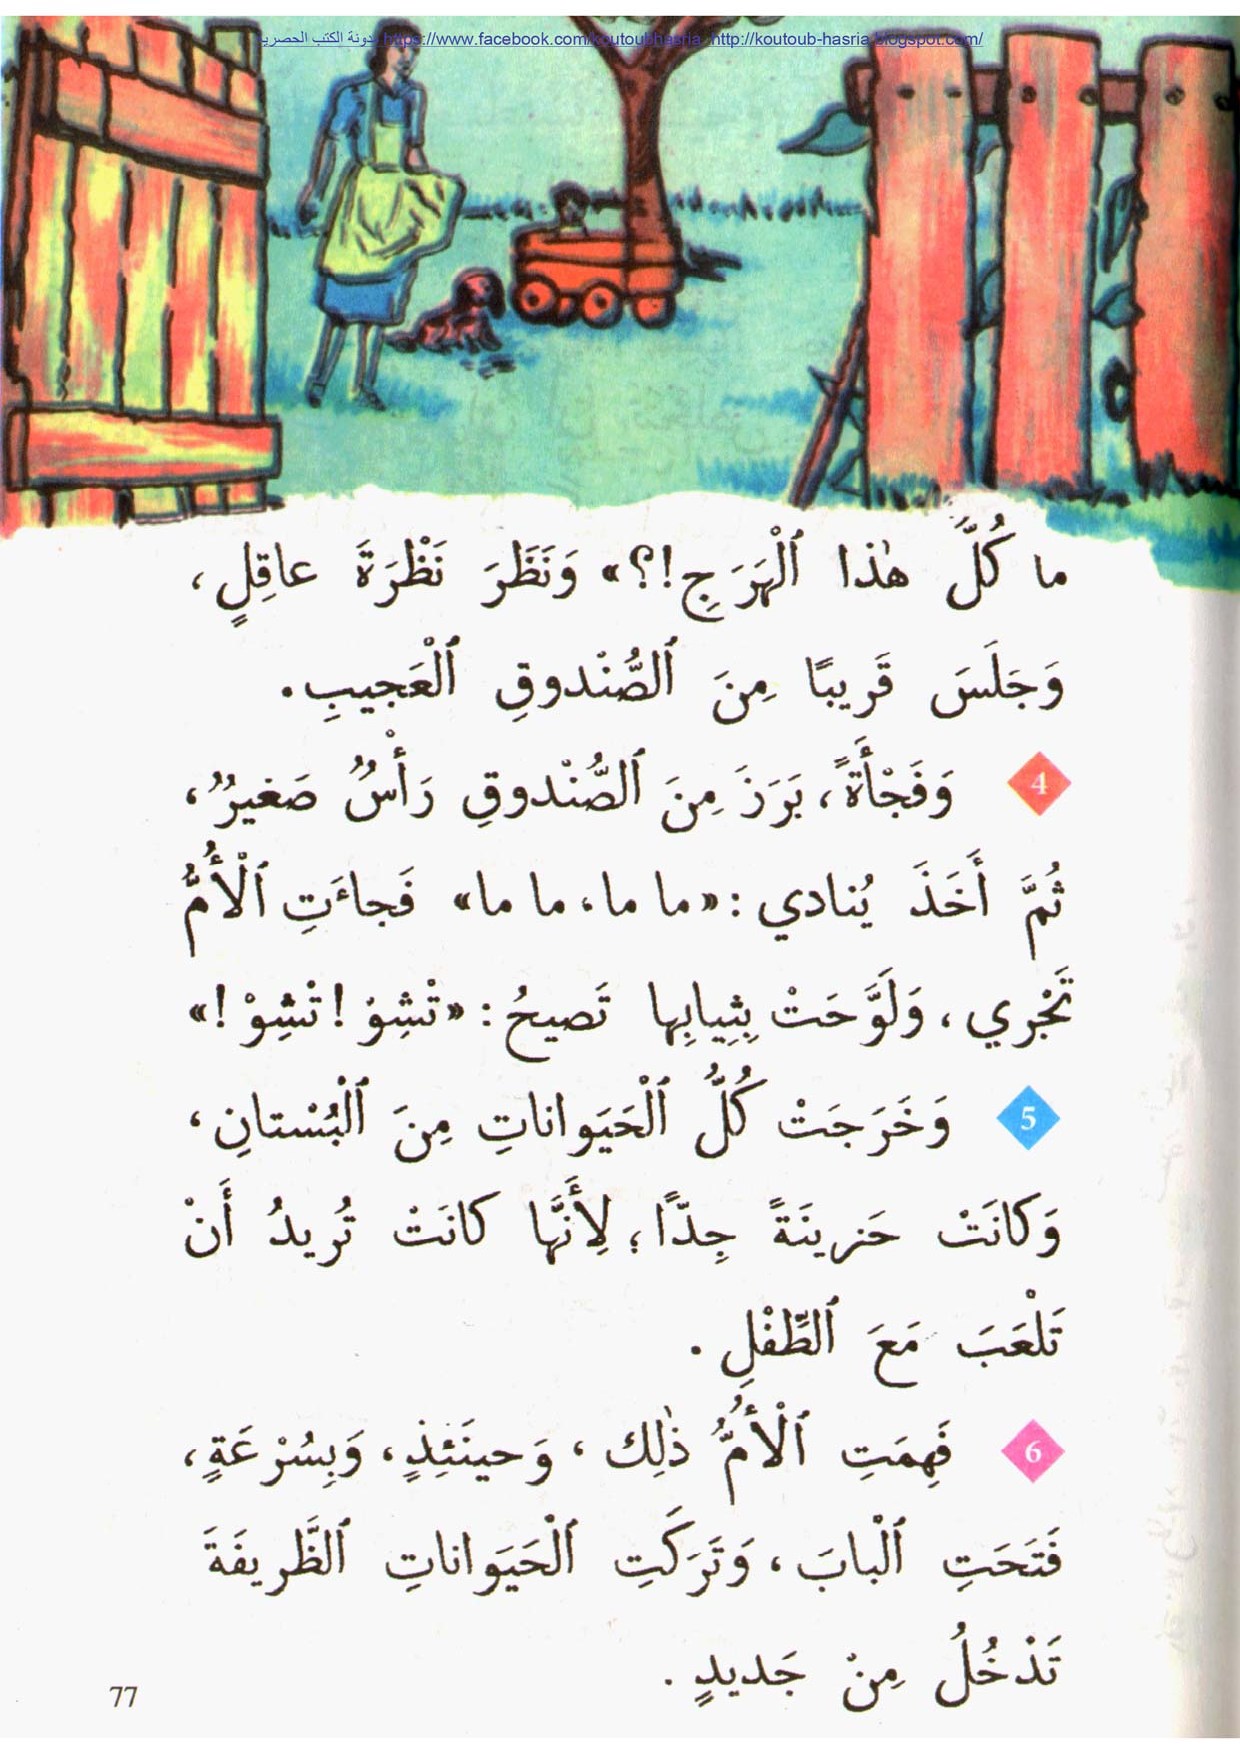 مدونة الكتب الحصرية https://www.facebook.com/koutoubhasria http://koutoub-hasria.blogspot.com/
ما كُلُّ هٰذا ٱلْهَرَجِ!؟» وَنَظَرَ نَظْرَةَ عاقِلٍ،
وَجَلَسَ قَريبًا مِنَ ٱلصُّنْدوقِ ٱلْعَجيبِ.
4 وَفَجْأَةً، بَرَزَ مِنَ ٱلصُّنْدوقِ رَأْسٌ صَغيرٌ،
ثُمَّ أَخَذَ يُنادي: «ما ما، ما ما» فَجاءَتِ ٱلْأُمُّ
تَجْري، وَلَوَّحَتْ بِثِيابِها تَصيحُ: «تْشِوْ! تْشِوْ!»
5 وَخَرَجَتْ كُلُّ ٱلْحَيَواناتِ مِنَ ٱلْبُسْتانِ،
وَكانَتْ حَزينَةً جِدًّا؛ لِأَنَّها كانَتْ تُريدُ أَنْ
تَلْعَبَ مَعَ ٱلطِّفْلِ.
6 فَهِمَتِ ٱلْأُمُّ ذٰلِكَ، وَحينَئِذٍ، وَبِسُرْعَةٍ،
فَتَحَتِ ٱلْبابَ، وَتَرَكَتِ ٱلْحَيَواناتِ ٱلظَّريفَةَ
تَدْخُلُ مِنْ جَديدٍ.
77